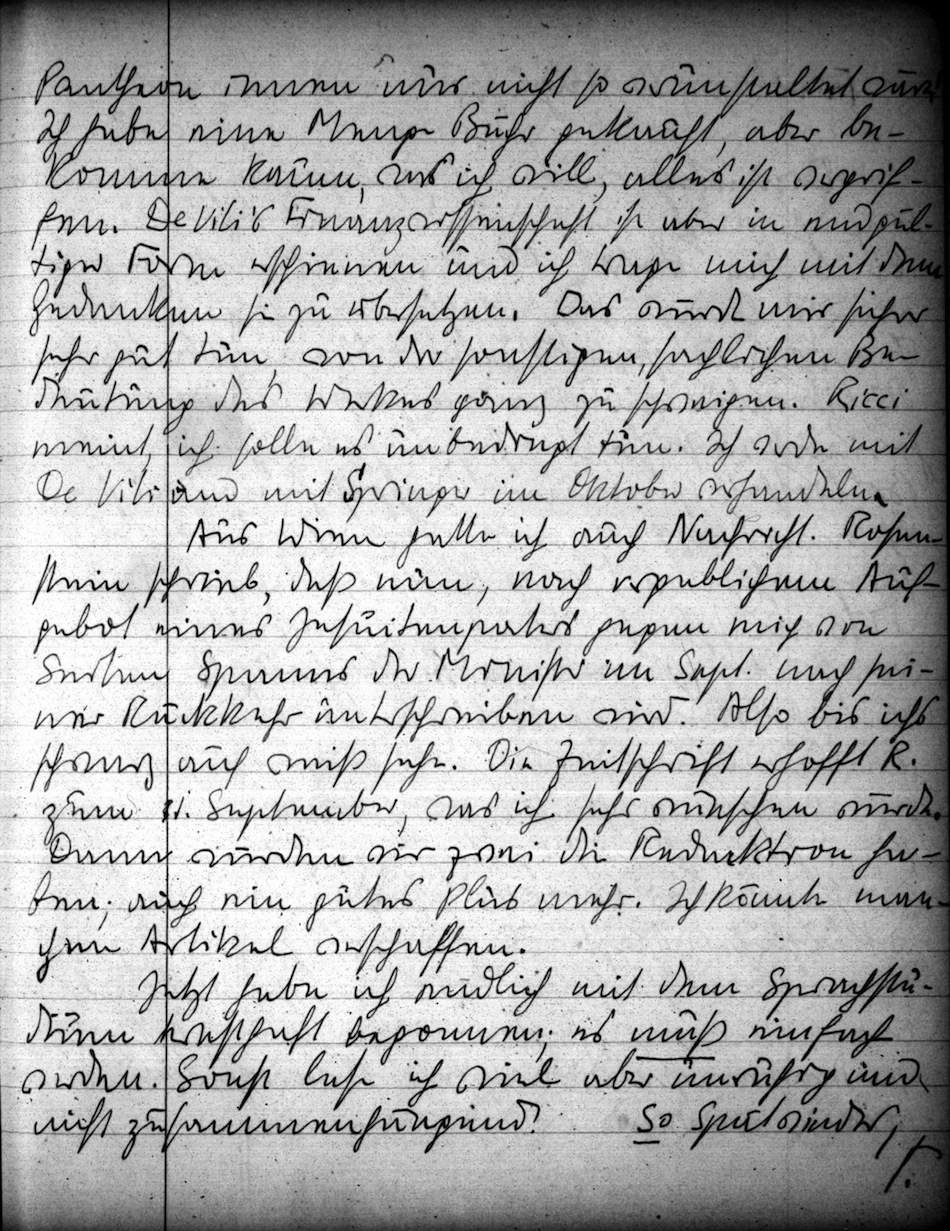 Pantheon innen nur nicht so verunstaltet wäre
Ich habe eine Menge Bücher gekauft, aber be-
komme kaum, was ich will, alles ist vergrif-
fen. De Viti's Finanzwissenschaft ist aber in endgül-
tiger Form erschienen und ich trage mich mit dem
Gedanken sie zu übersetzen. Das würde mir sicher
sehr gut tun, von der sonstigen, sachlichen Be-
deutung des Werkes ganz zu schweigen. Ricci
meint, ich solle es unbedingt tun. Ich werde mit
De Viti und mit Springer im Oktober verhandeln.
Aus Wien hatte ich auch Nachricht. Rosen-
stein schrieb, daß nun, nach vergeblichem Auf-
gebot eines Jesuitenpaters gegen mich von
Seiten Spanns der Minister im Sept. nach sei-
ner Rückkehr unterschreiben wird. Also bis ichs
schwarz auf weiß sehe. Die Zeitschrift erhofft R.
zum 1. September, was ich sehr wünschen würde.
Dann würden wir zwei die Redaktion ha-
ben; auch ein gutes Plus mehr. Ich könnte man-
chen Artikel verschaffen.
Jetzt habe ich endlich mit dem Sprachstu-
dium ernsthaft begonnen; es muß einfach
werden. Sonst lese ich viel aber unruhig und
nicht zusammenhängend! So